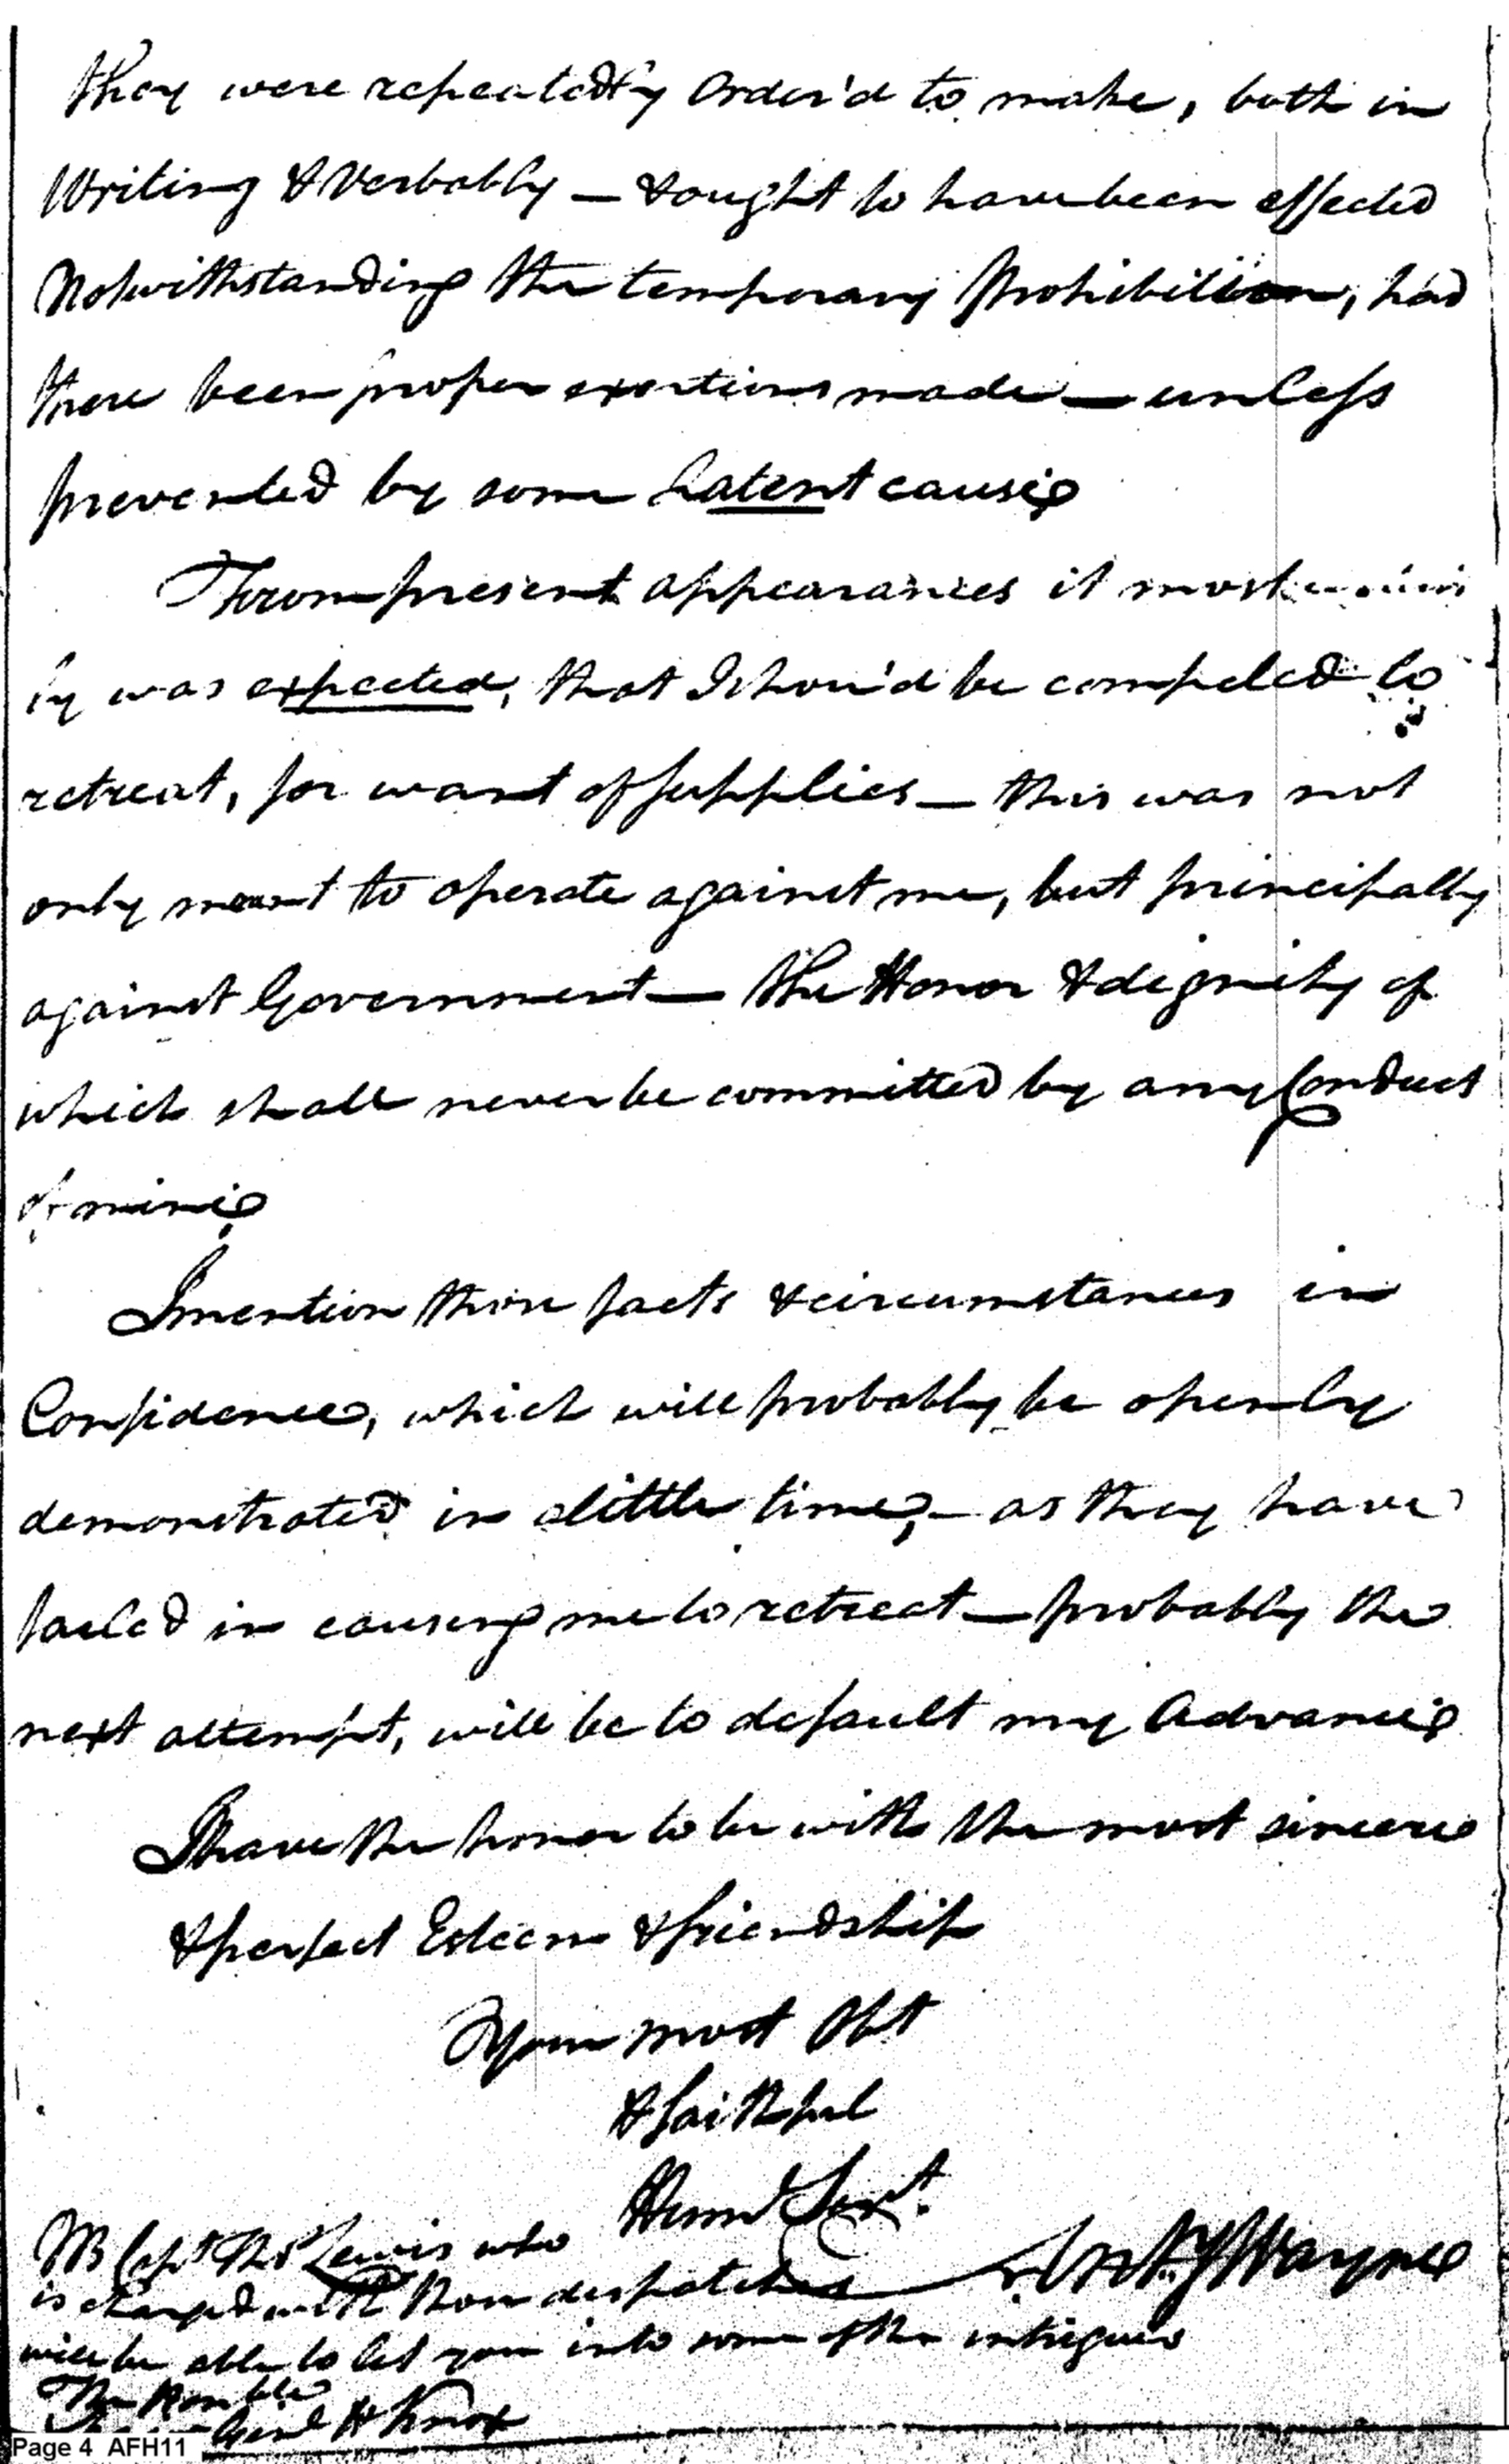 they were repeatedly Order'd to make, both in
Writing & Verbally — & ought to have been effected
Notwithstanding the temporary prohibition, had
there been proper exertions made — unless
prevented by some Latent cause
From present appearances it most
ly was expected, that I shou'd be compeled to
retreat, for want of supplies — this was not
only meant to operate against me, but principally
against Government — the Honor & dignity of
which shall never be committed by any Conduct
of mine
I mention these facts & circumstances in
Confidence, which will probably be openly
demonstrated in a little time, — as they have
failed in causing me to retreat — probably the
next attempt, will be to default my Advance
I have the honor to be with the most sincere
& perfect Esteem & friendship
Your most Obt
& faithful
Huml Servt.
NB Capt Ths Lewis who
is charged with these despatches
Anty Wayne
will be able to let you into some of the intrigues
The Honble
Genl H Knox
Page 4 AFH11